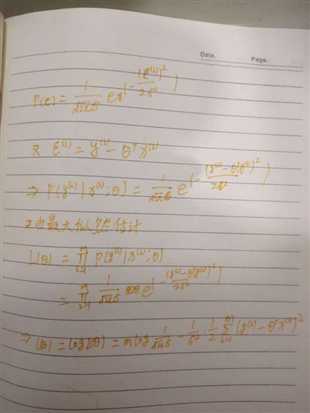 Date. Page.
P(ε) = 1/√2πσ exp(-(ε⁽ⁱ⁾)²/2σ²)
又 ε⁽ⁱ⁾ = y⁽ⁱ⁾ - θᵀx⁽ⁱ⁾
⇒ P(y⁽ⁱ⁾|x⁽ⁱ⁾;θ) = 1/√2πσ e(-(y⁽ⁱ⁾-θᵀx⁽ⁱ⁾)²/2σ²)
最大似然估计
L(θ) = ∏ P(y⁽ⁱ⁾|x⁽ⁱ⁾;θ)
= ∏ 1/√2πσ exp(-(y⁽ⁱ⁾-θᵀx⁽ⁱ⁾)²/2σ²)
⇒ l(θ) = log L(θ) = m log 1/√2πσ - 1/σ² · 1/2 ∑ (y⁽ⁱ⁾ - θᵀx⁽ⁱ⁾)²